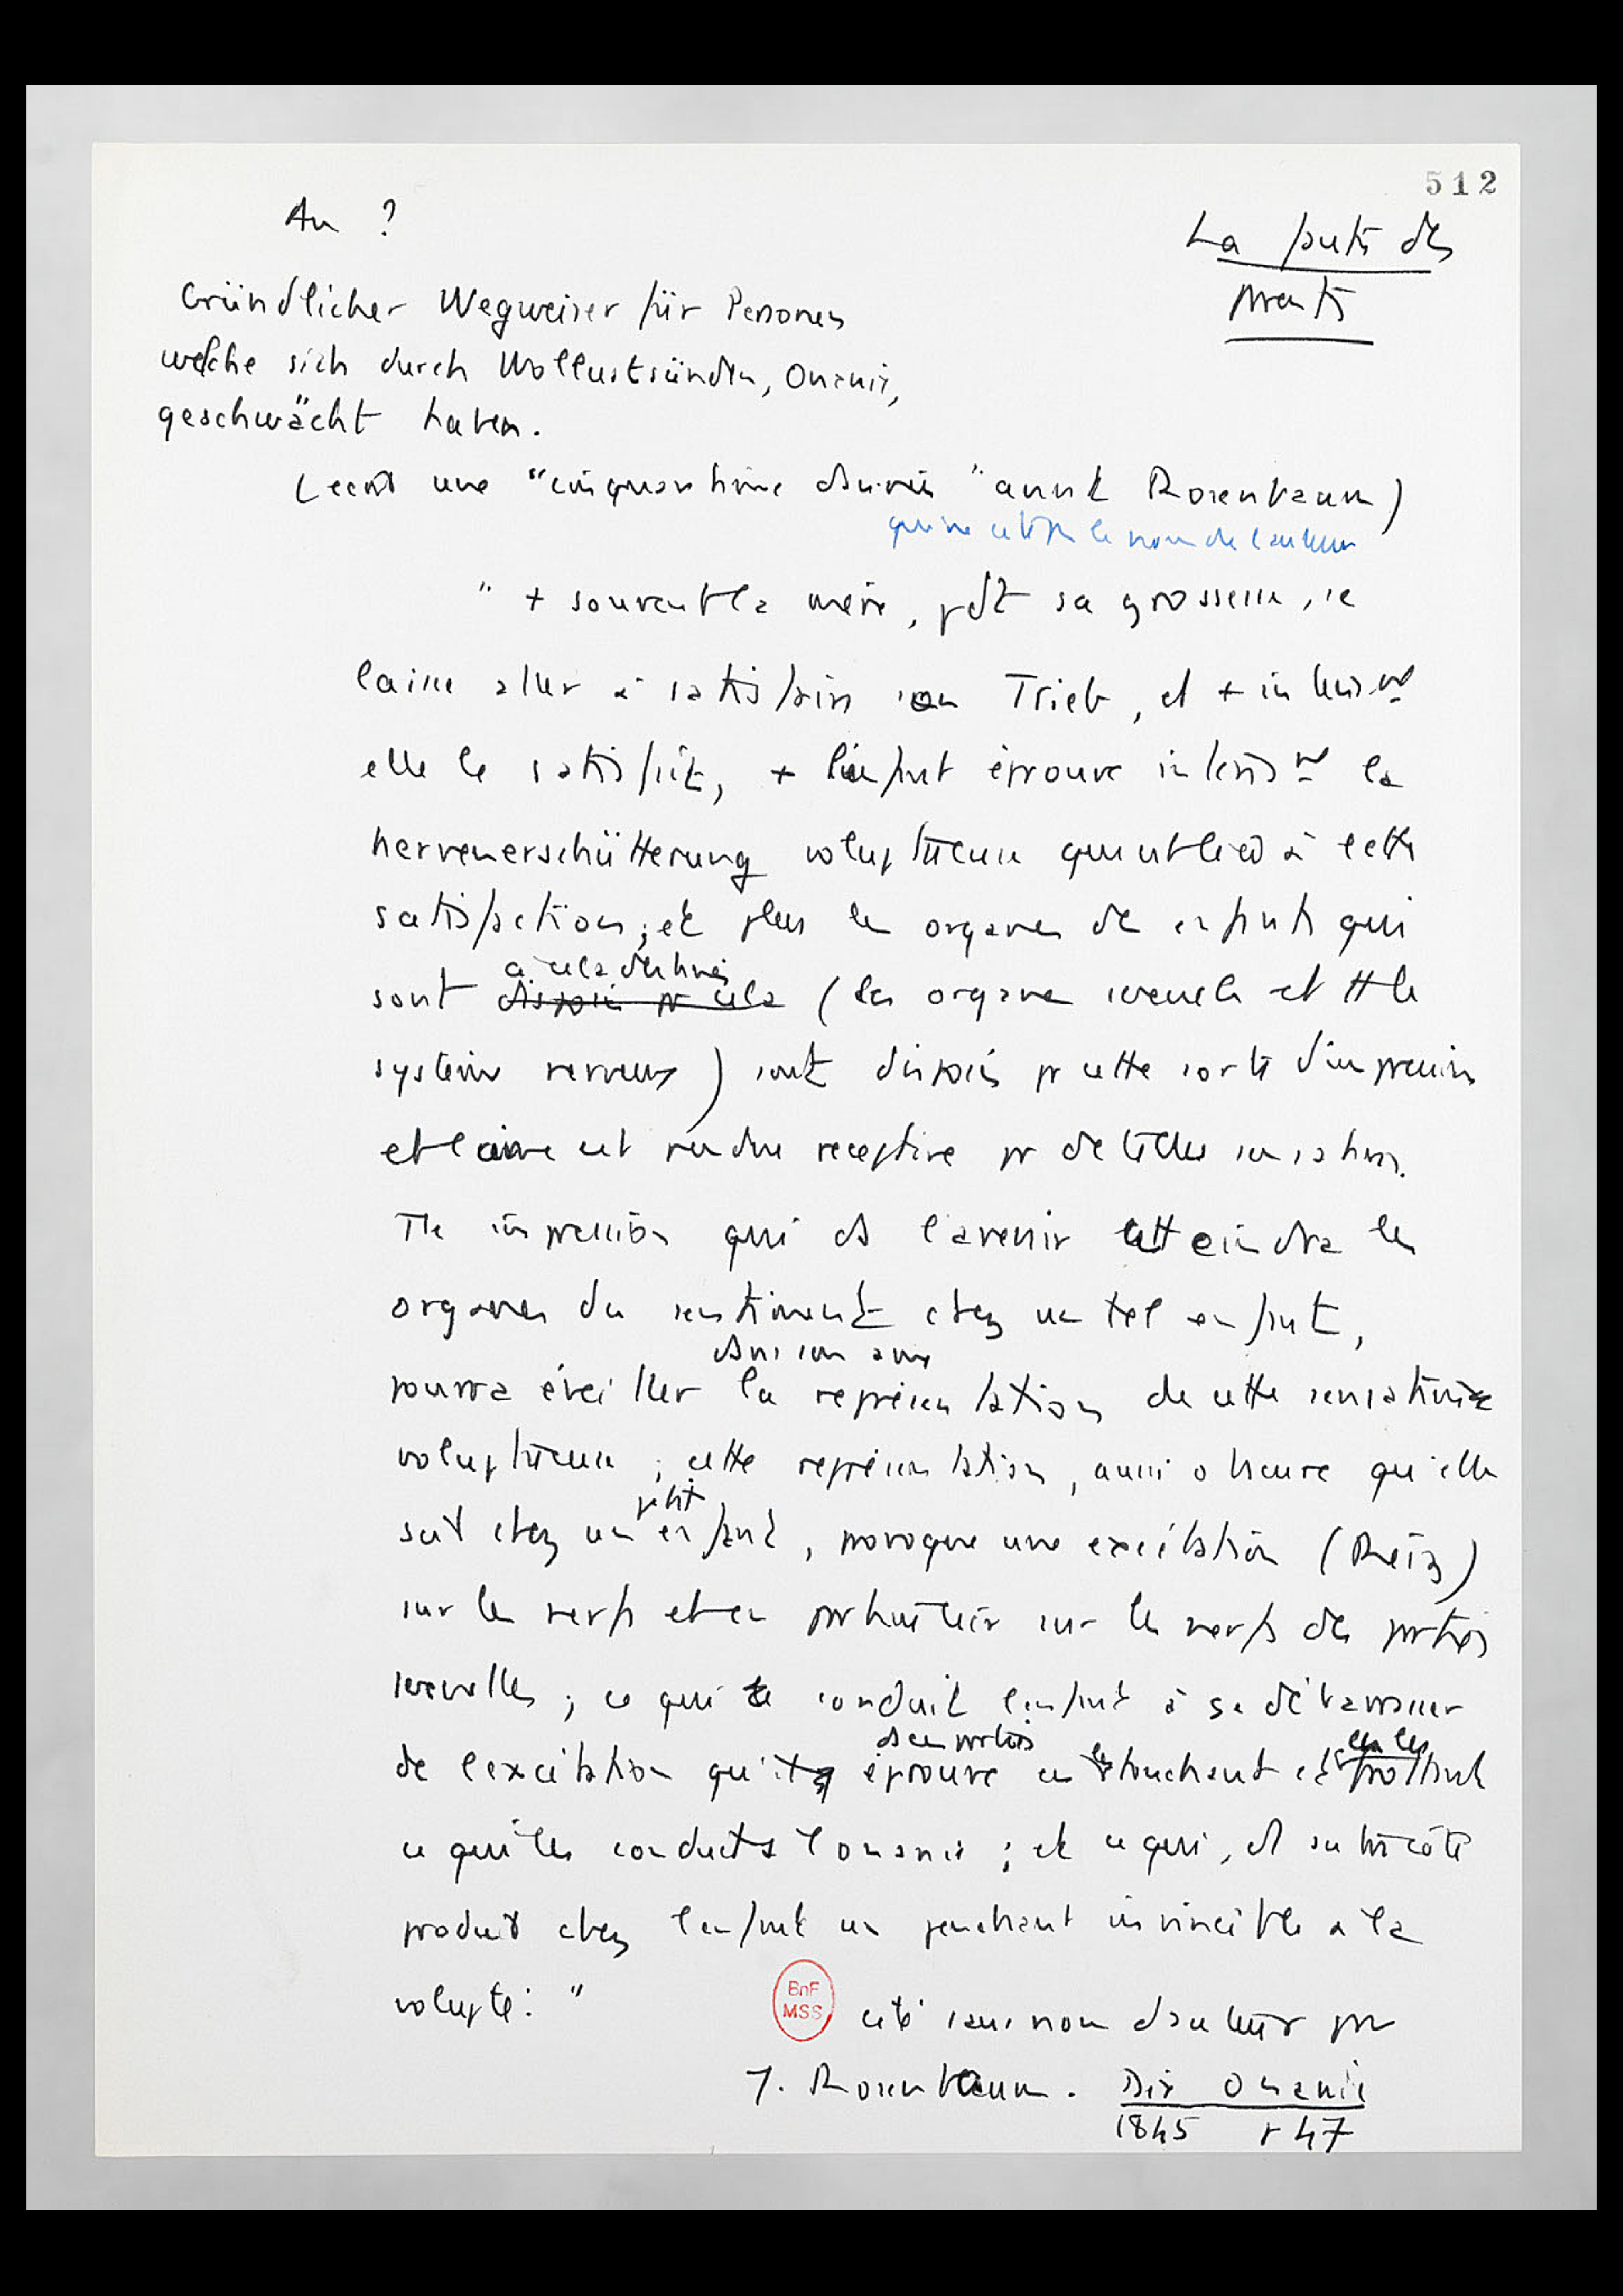 512
An ?
La faute des
parents
Gründlicher Wegweiser für Personen
welche sich durch Wollustsünden, Onanie,
geschwächt haben.
(écrit une "cinquantaine d'années" avant Rosenbaum)
qui ne cite pas le nom de l'auteur
" + souvent la mère, pdt sa grossesse, se
laisse aller à satisfaire son Trieb, et + intensmt
elle le satisfait, + l'enfant éprouve intensmt la
nervenerschütterung voluptueuse qui est liée à cette
satisfaction ; et plus les organes de enfants qui
à cela destinés
sont disposés pr cela (les organes sexuels et tt le
système nerveux) sont disposés pr cette sorte d'impressions
et l'âme est rendue réceptive pr de telles sensations.
Tte impression qui ds l'avenir atteindra les
organes du sentiment chez un tel enfant,
dans son âme
pourra éveiller la représentation de cette sensation
voluptueuse ; cette représentation, aussi obscure qu'elle
petit
soit chez un enfant, provoque une excitation (Reiz)
sur les nerfs et en particulier sur les nerfs des parties
sexuelles ; ce qui conduit l'enfant à se débarrasser
ds ces parties
en les
de l'excitation qu'il éprouve en les touchant et frottant
ce qui les conduit à l'onanie ; et ce qui, d'un autre côté
produit chez l'enfant un penchant invincible à la
volupté. "
BnF
MSS
cité sans nom d'auteur par
J. Rosenbaum. Die Onanie
1845 p 47